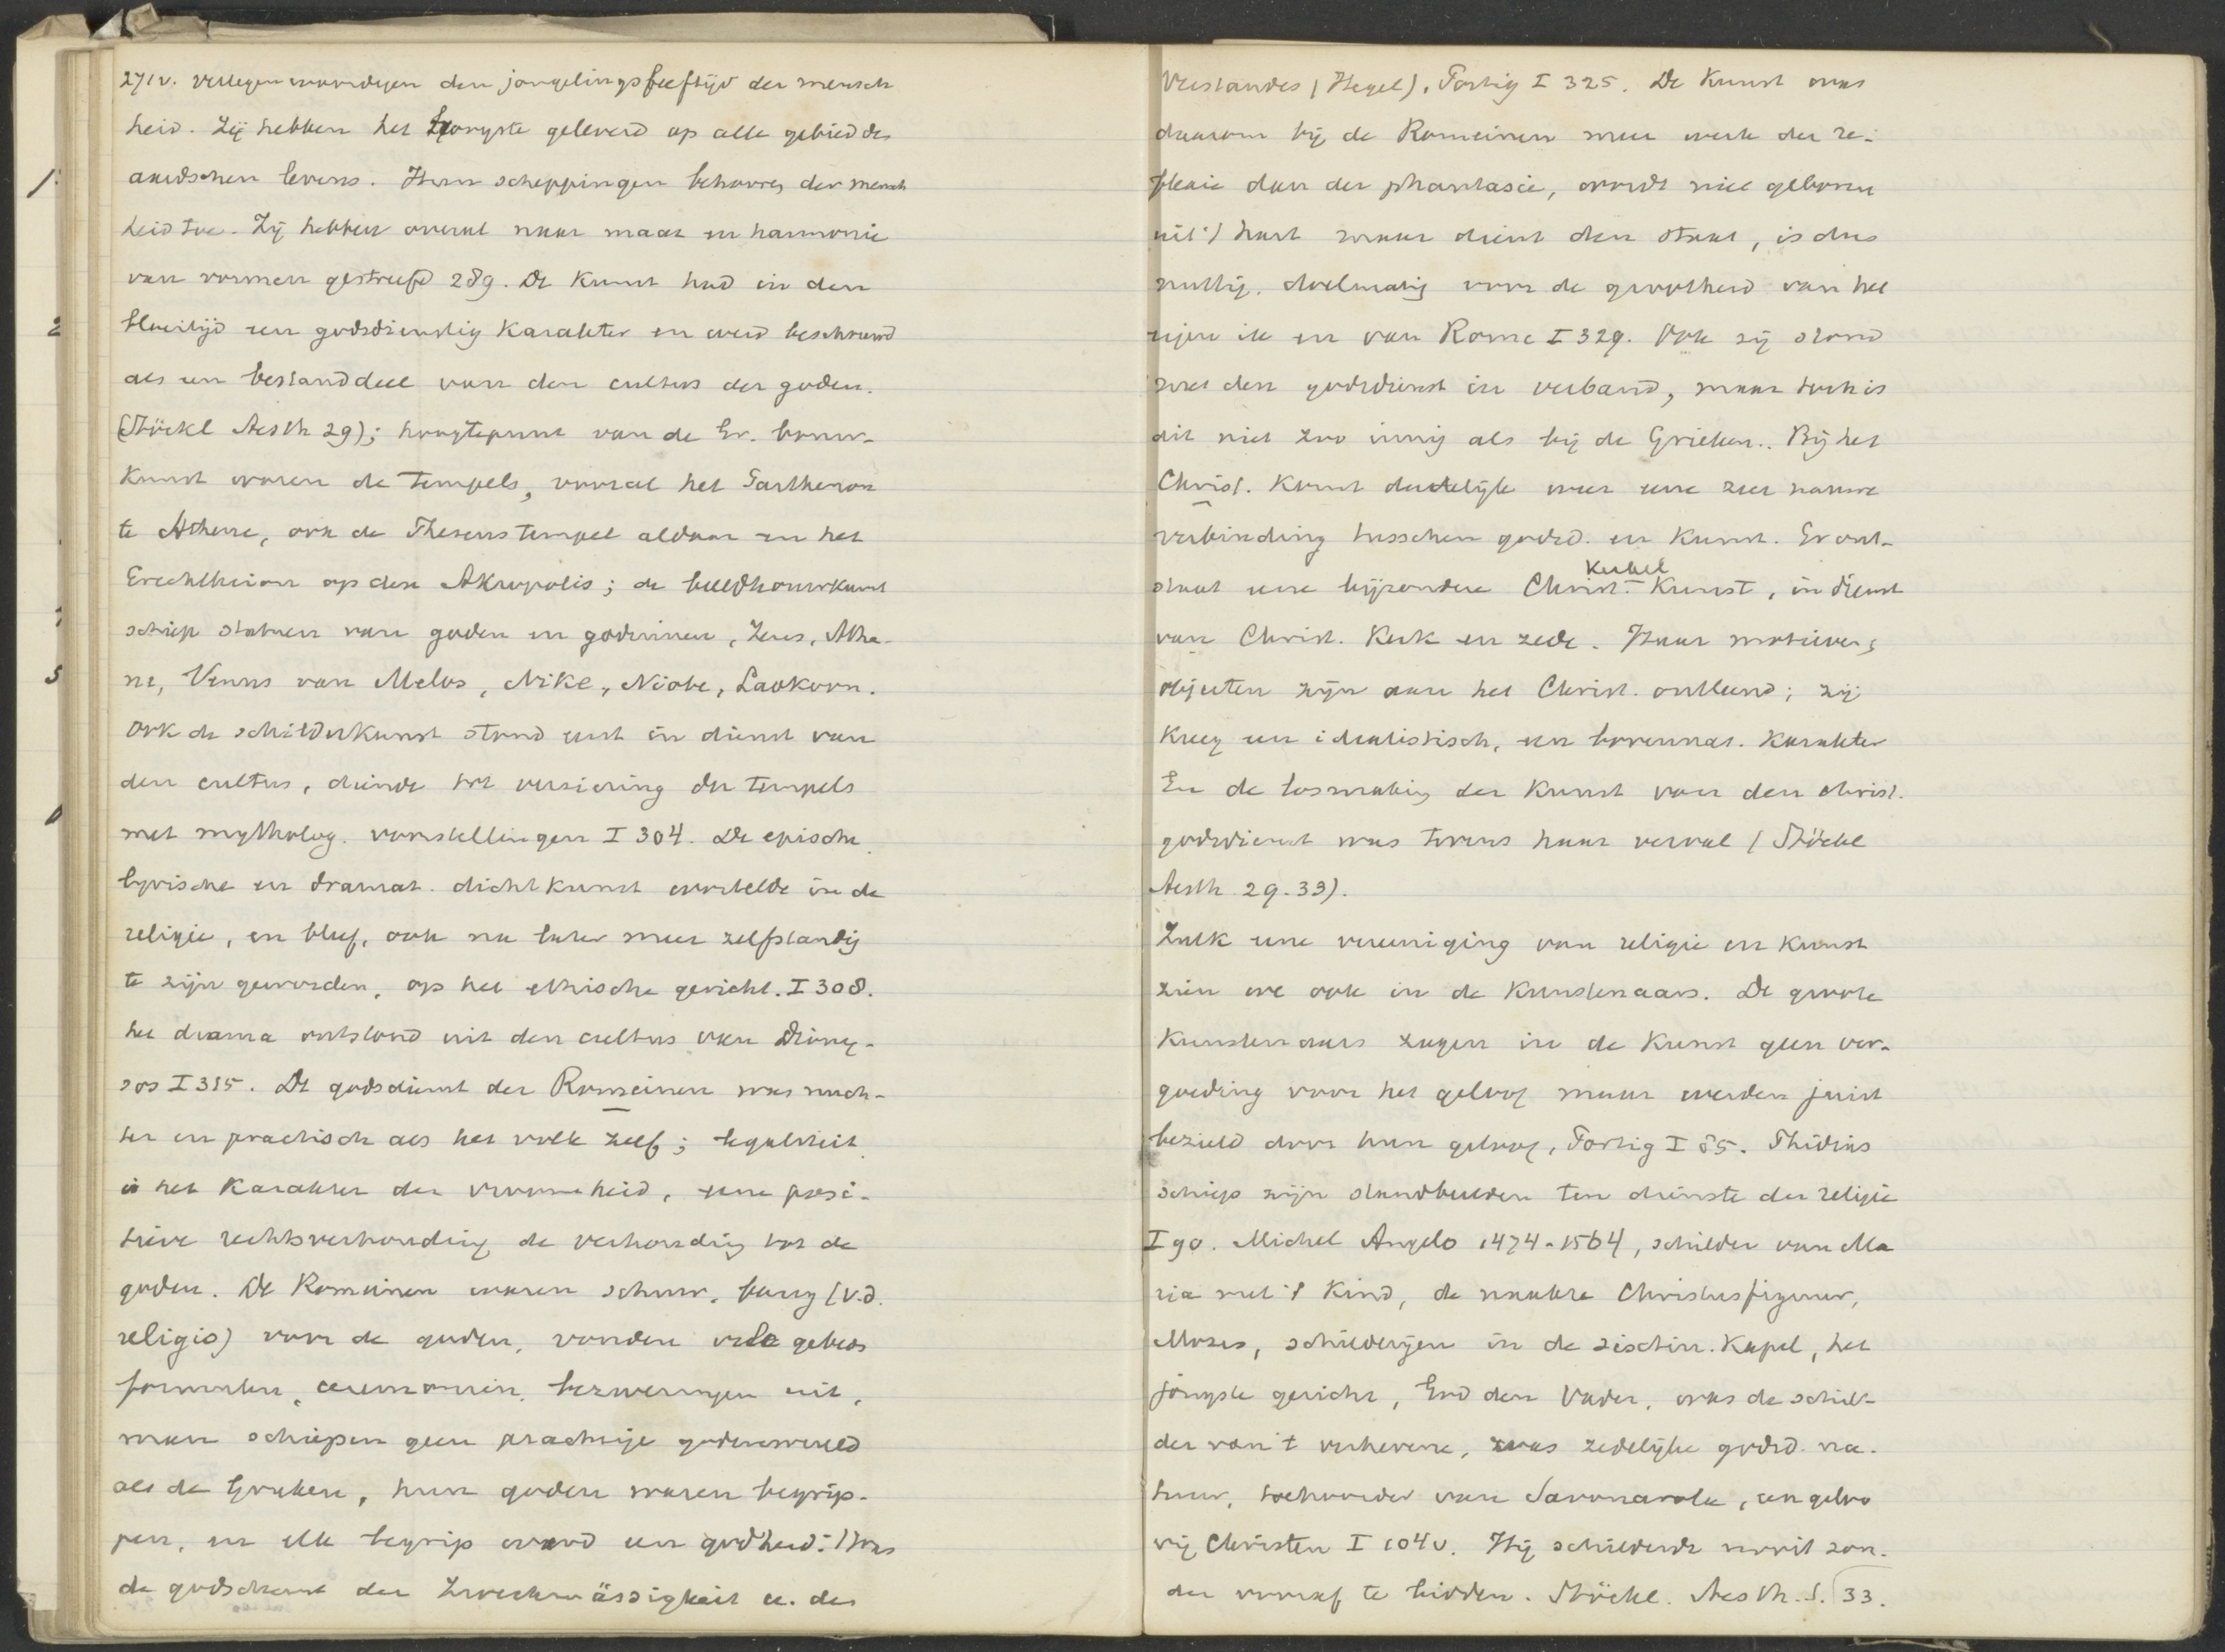 271v. vertegenwoordigen den jongelingsleeftijd der mensch
heid. Zij hebben het hoogste geleverd op alle gebied des
aardschen levens. Hun scheppingen behooren der mensch
heid toe. Zij hebben overal naar maat en harmonie
van vormen gestreefd 289. De Kunst had in den
bloeitijd een godsdienstig Karakter en werd beschouwd
als een bestanddeel van den cultus der goden.
(Stöckl Aesth 29); hoogtepunt van de Gr. bouw-
Kunst waren de tempels, vooral het Parthenon
te Athene, ook de Theseustempel aldaar en het
Erechtheion op den Akropolis; de beeldhouwkunst
schiep statuen van goden en godinnen, Zeus, Athe-
ne, Venus van Melos, Nike, Niobe, Laokoon.
Ook de schilderkunst stond eerst in dienst van
den cultus, diende tot versiering der tempels
met mytholog. voorstellingen I 304. De epische
lyrische en dramat. dichtkunst wortelde in de
religie, en bleef, ook na later meer zelfstandig
te zijn geworden, op het ethische gericht. I 308.
het drama ontstond uit den cultus van Diony-
sos I 315. De godsdienst der Romeinen was nuch-
ter en practisch als het volk zelf; legaliteit
is het Karakter der vroomheid, eene posi-
tieve rechtsverhouding de verhouding tot de
goden. De Romeinen waren schuw, bang (v.d.
religio) voor de goden, vonden vele gebeds
formulen, ceremoniën, bezweringen uit,
maar schiepen geen prachtige godenwereld
als de Grieken, hun goden waren begrip-
pen, en elk begrip werd een godheid: 't was
de godsdienst der Zweckmässigkeit u. des
Verstandes (Hegel), Portig I 325. De Kunst was
daarom bij de Romeinen meer werk der re-
flexie dan der phantasie, wordt niet geboren
uit 't hart maar dient den staat, is dus
nuttig, doelmatig voor de grootheid van het
eigen ik en van Rome I 329. Ook zij stond
met den godsdienst in verband, maar toch is
dit niet zoo innig als bij de Grieken. Bij het
Christ. Komt dadelijk weer eene zeer nauwe
verbinding tusschen godsd. en Kunst. Er ont-
Kerkel
staat eene bijzondere Christ.- Kunst, in dienst
van Christ. Kerk en zede. Haar motieven,
objecten zijn aan het Christ. ontleend; zij
Kreeg een idealistisch, een bovennat. Karakter
En de losmaking der Kunst van den christ.
godsdienst was tevens haar verval (Stöckl
Aesth 29-33).
Zulk eene vereeniging van religie en Kunst
zien we ook in de Kunstenaars. De groote
Kunstenaars zagen in de Kunst geen ver-
goeding voor het geloof maar werden juist
bezield door hun geloof, Portig I 85. Phidias
schiep zijn standbeelden ten dienste der religie
I 90. Michel Angelo 1474-1564, schilder van Ma
ria met 't Kind, de naakte Christusfiguur,
Mozes, schilderijen in de sixtin. Kapel, het
jongste gericht, God den Vader, was de schil-
der van 't verhevene, was zedelijke godsd. na-
tuur, toehoorder van Savonarola, een geloo
vig Christen I 104v. Hij schilderde nooit zon-
der vooraf te bidden. Stöckl. Aesth. S. 33.